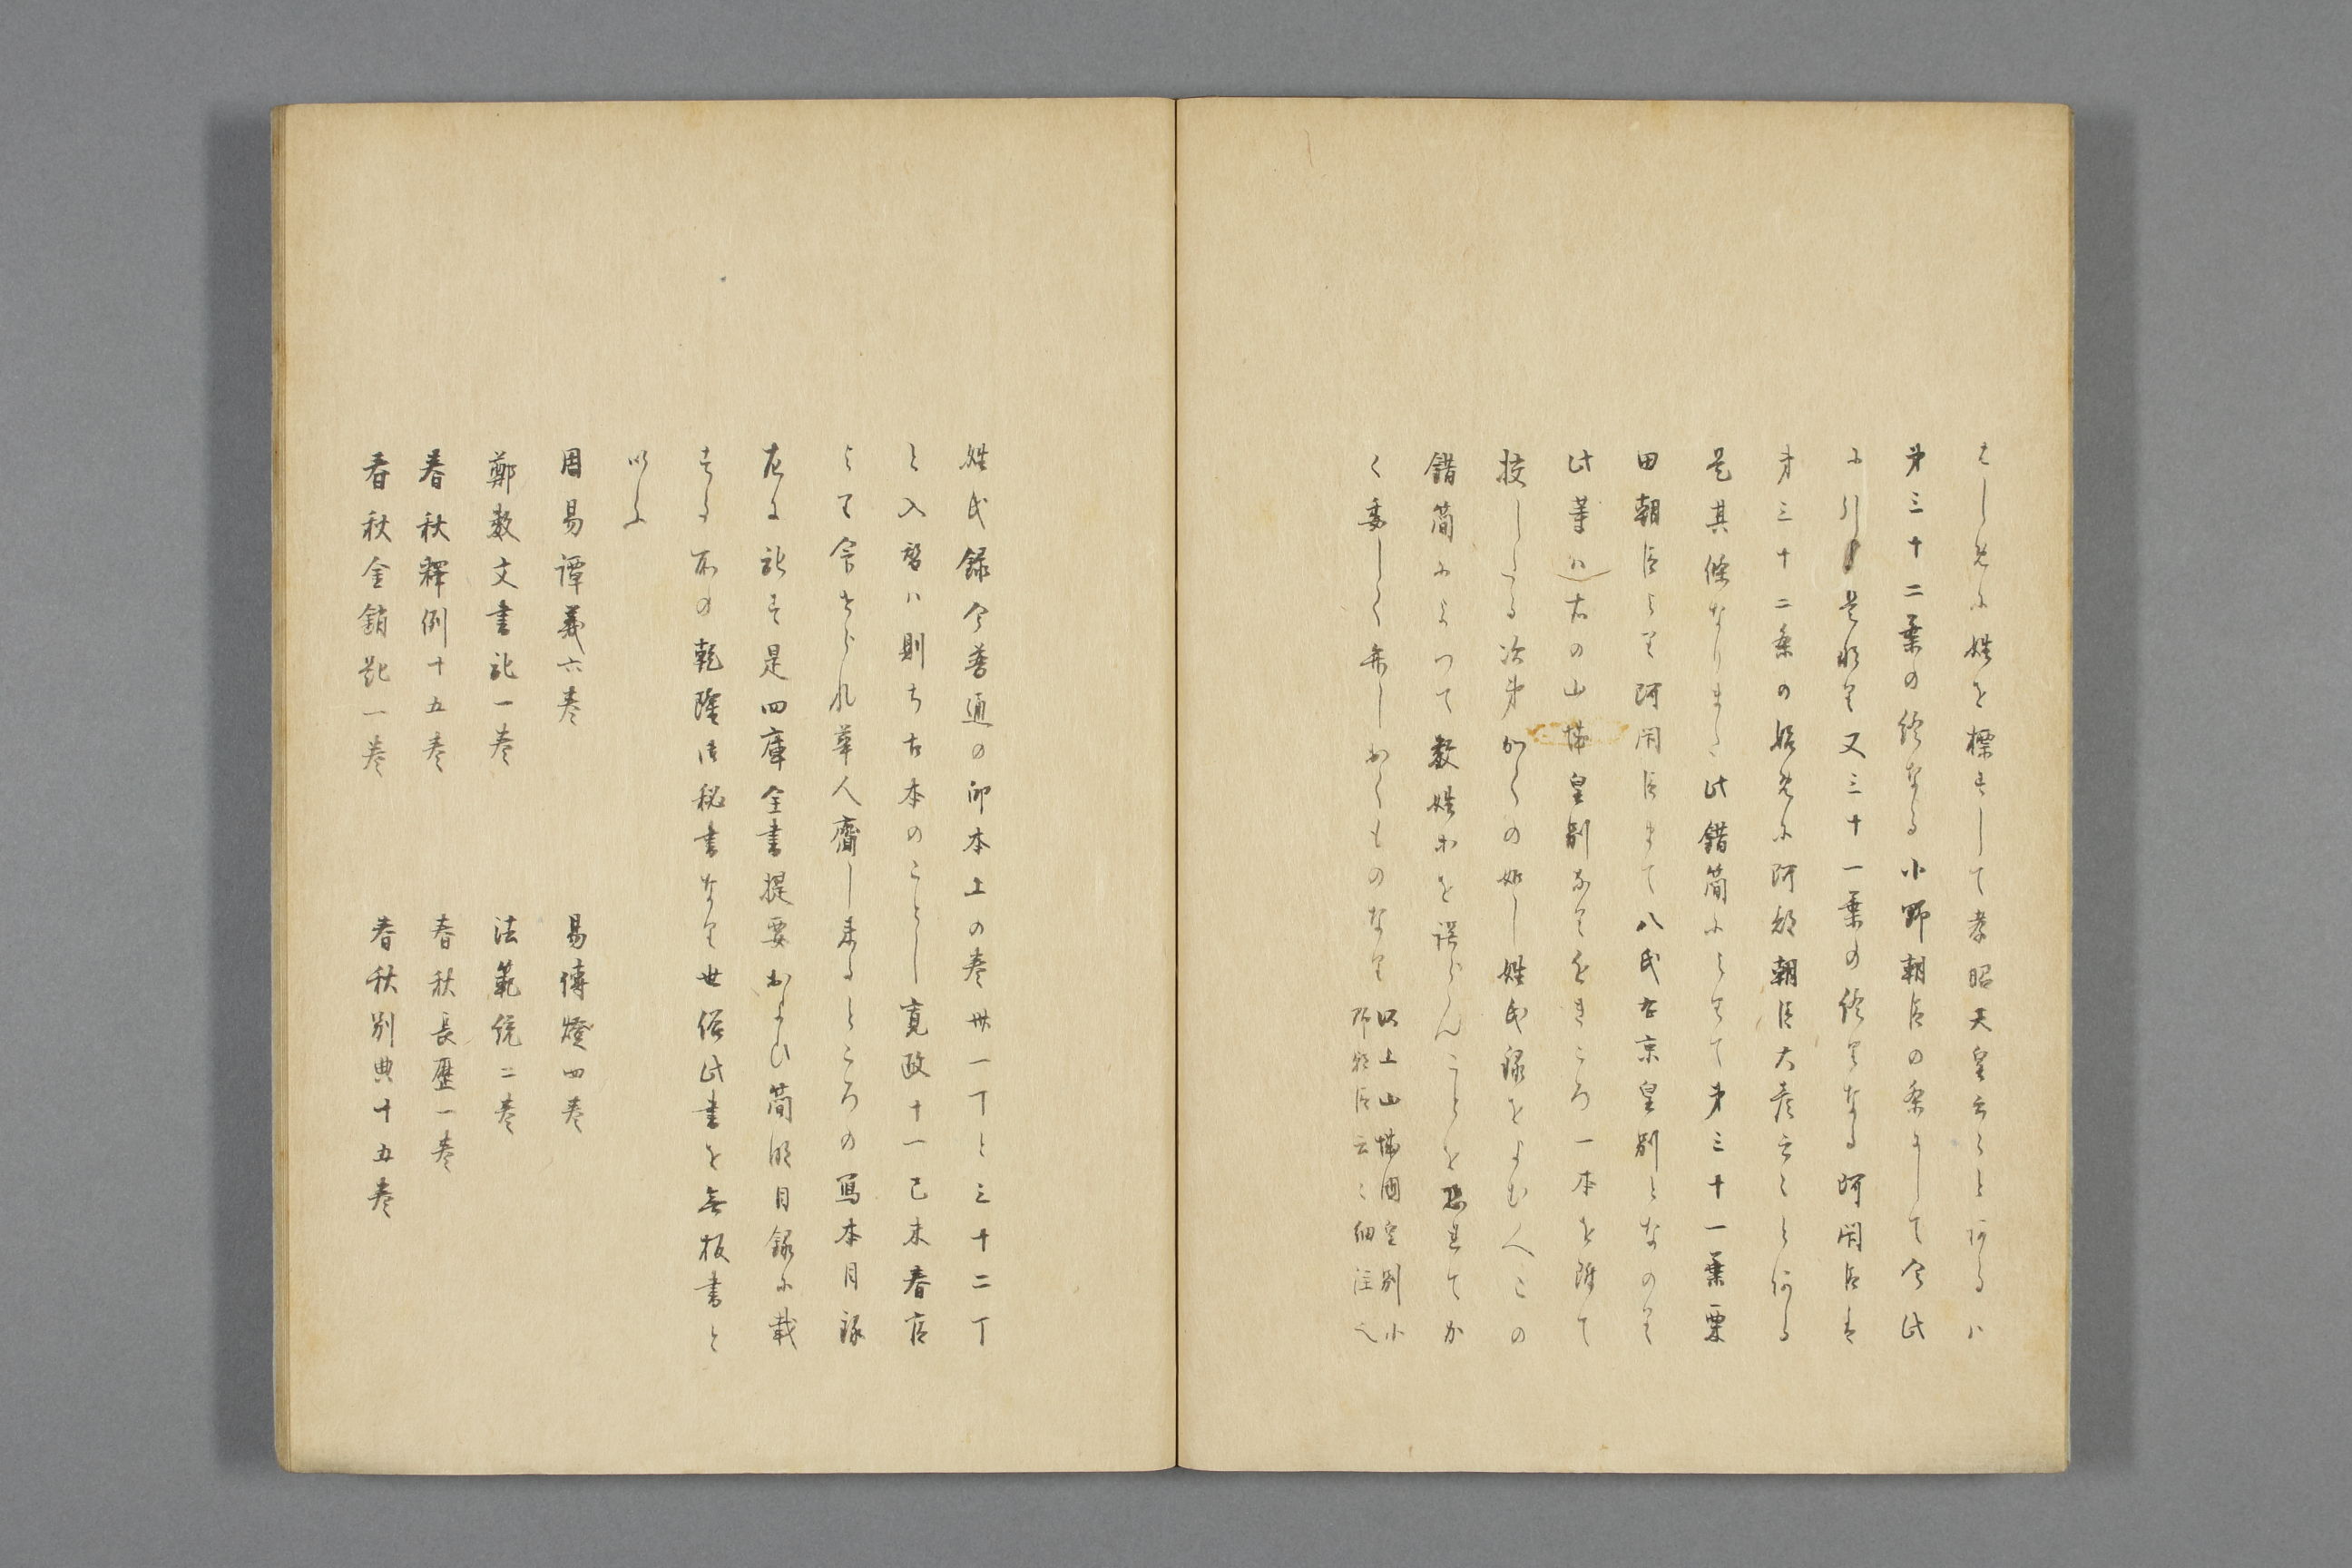 はしめに姓を標すして孝昭天皇云々とあるハ
第三十二葉の終なる小野朝臣の条にして今此
に引
是なり又三十一葉の終りなる阿閇臣は
第三十二条の始めに阿部朝臣大彦云々とある
是其條なりまた此錯簡によりて第三十一葉粟
田朝臣より阿閇臣まて八氏右京皇別となのり
此等ハ右の山城皇別なりをきころ一本を借て
挍したる次第かくの如し姓氏録をよむ人この
錯簡によつて数姓を誤らんことを恐れてか
く委しく弁しおくものなり 以上山城國皇別小
野朝臣云々細注也
姓氏録今普通の印本上の巻卅一丁と三十二丁
と入替ハ則ち古本のことし寛政十一己未春店
よて舎されハ華人齎し来るところの寫本目録
左に記す是四庫全書提要および簡明目録に載
する所の乾隆御秘書なり世俗此書を無板書と
いふ
周易譚義六巻 易傳燈四巻
鄭敷文書記一巻 法範統二巻
春秋釋例十五巻 春秋長歴一巻
春秋金鎖匙一巻 春秋別典十五巻